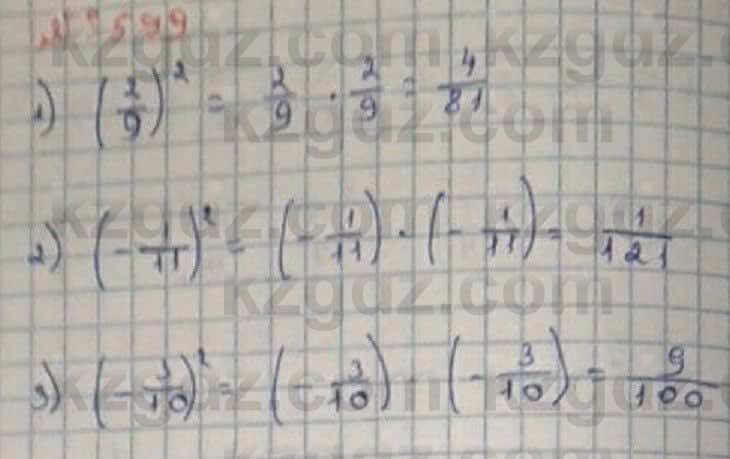 № 599
1) (2/9)² = 2/9 · 2/9 = 4/81
2) (-1/11)² = (-1/11) · (-1/11) = 1/121
3) (-3/10)² = (-3/10) · (-3/10) = 9/100
kzgdz.com
kzgdz.com
kzgdz.com
kzgdz.com